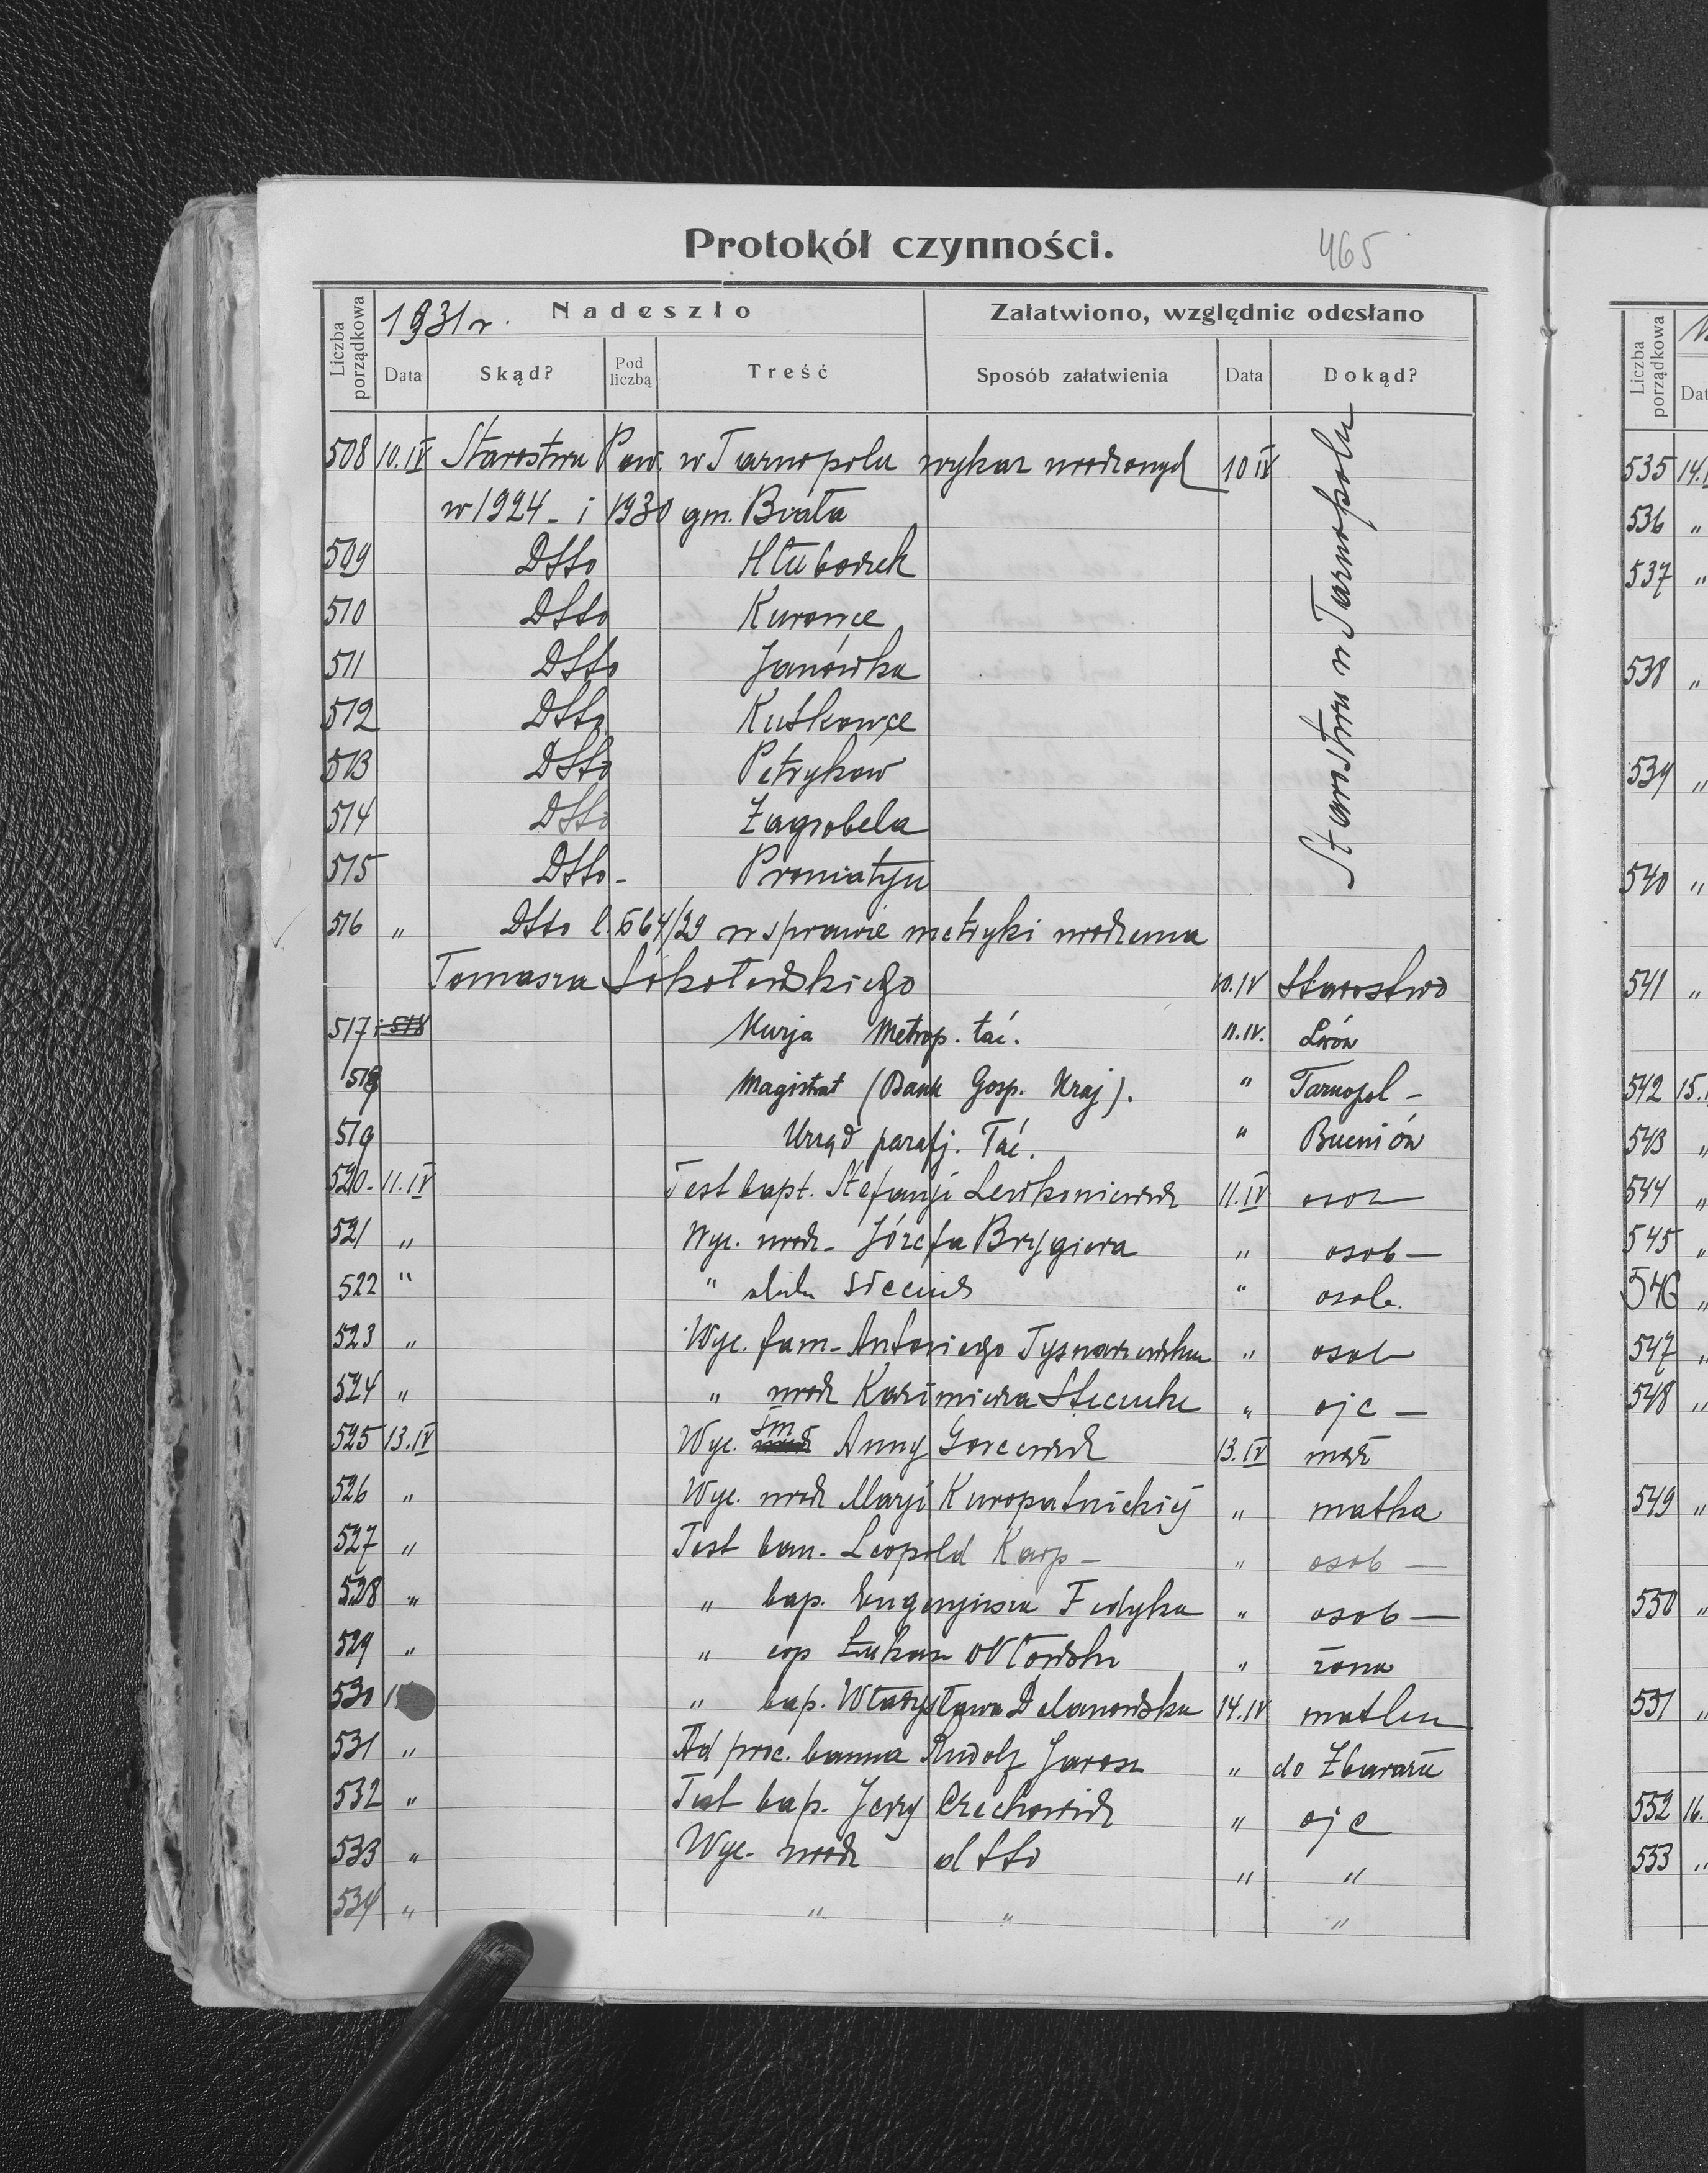 Protokół czynności. 465
Liczba porządkowa 1931 r. Nadeszło Załatwiono, względnie odesłano
Data Skąd? Pod liczbą Treść Sposób załatwienia Data Dokąd?
508 10.IV Starostwu Pow. w Tarnopolu wykaz urodzonych 10 IV Starostwu w Tarnopolu
w 1924 - i 1930 gm. Biała
509 Dtto Hłuboczek
510 Dtto Kurowce
511 Dtto Janówka
512 Dtto Kutkowce
513 Dtto Petryków
514 Dtto Zagrobela
515 Dtto - Proniatyn
516 " Dtto l. 564/29 w sprawie metryki urodzenia
Tomasza 10.IV Starostwo
517 Kurja Metrop. łać. 11.IV. Lwów
518 Magistrat (Bank Gosp. Kraj). " Tarnopol -
519 Urząd parafj. łać. " Bucniów
520 - 11.IV Test bapt. Stefanji 11.IV osob
521 " Wyc. urodz - Józefa Brygiera " osob -
522 " " ślubu " osob.
523 " Wyc. fam - Antoniego " osob
524 " " urodz Kazimierza " ojc -
525 13.IV Wyc. śm Anny 13.IV mąż
526 " Wyc. urodz Marji Kuropatnickiej " matka
527 " Test ban - Leopold Karp - " osob -
528 " " bap. Eugenjusza Fedyka " osob -
529 " " cop Łukasz " żona
530 " bap. Władysława 14.IV matka
531 " Ad proc. banna Rudolf Jarosz " do Zbaraża
532 " Test bap. Jerzy Czechowicz " ojc
533 " Wyc. urodz dtto " "
534 " " " "
Liczba porządkowa
535 14.
536 "
537 "
538 "
539 "
540 "
541 "
542 15.
543 "
544 "
545 "
546 "
547 "
548 "
549 "
550 "
551 "
552 16.
553 "